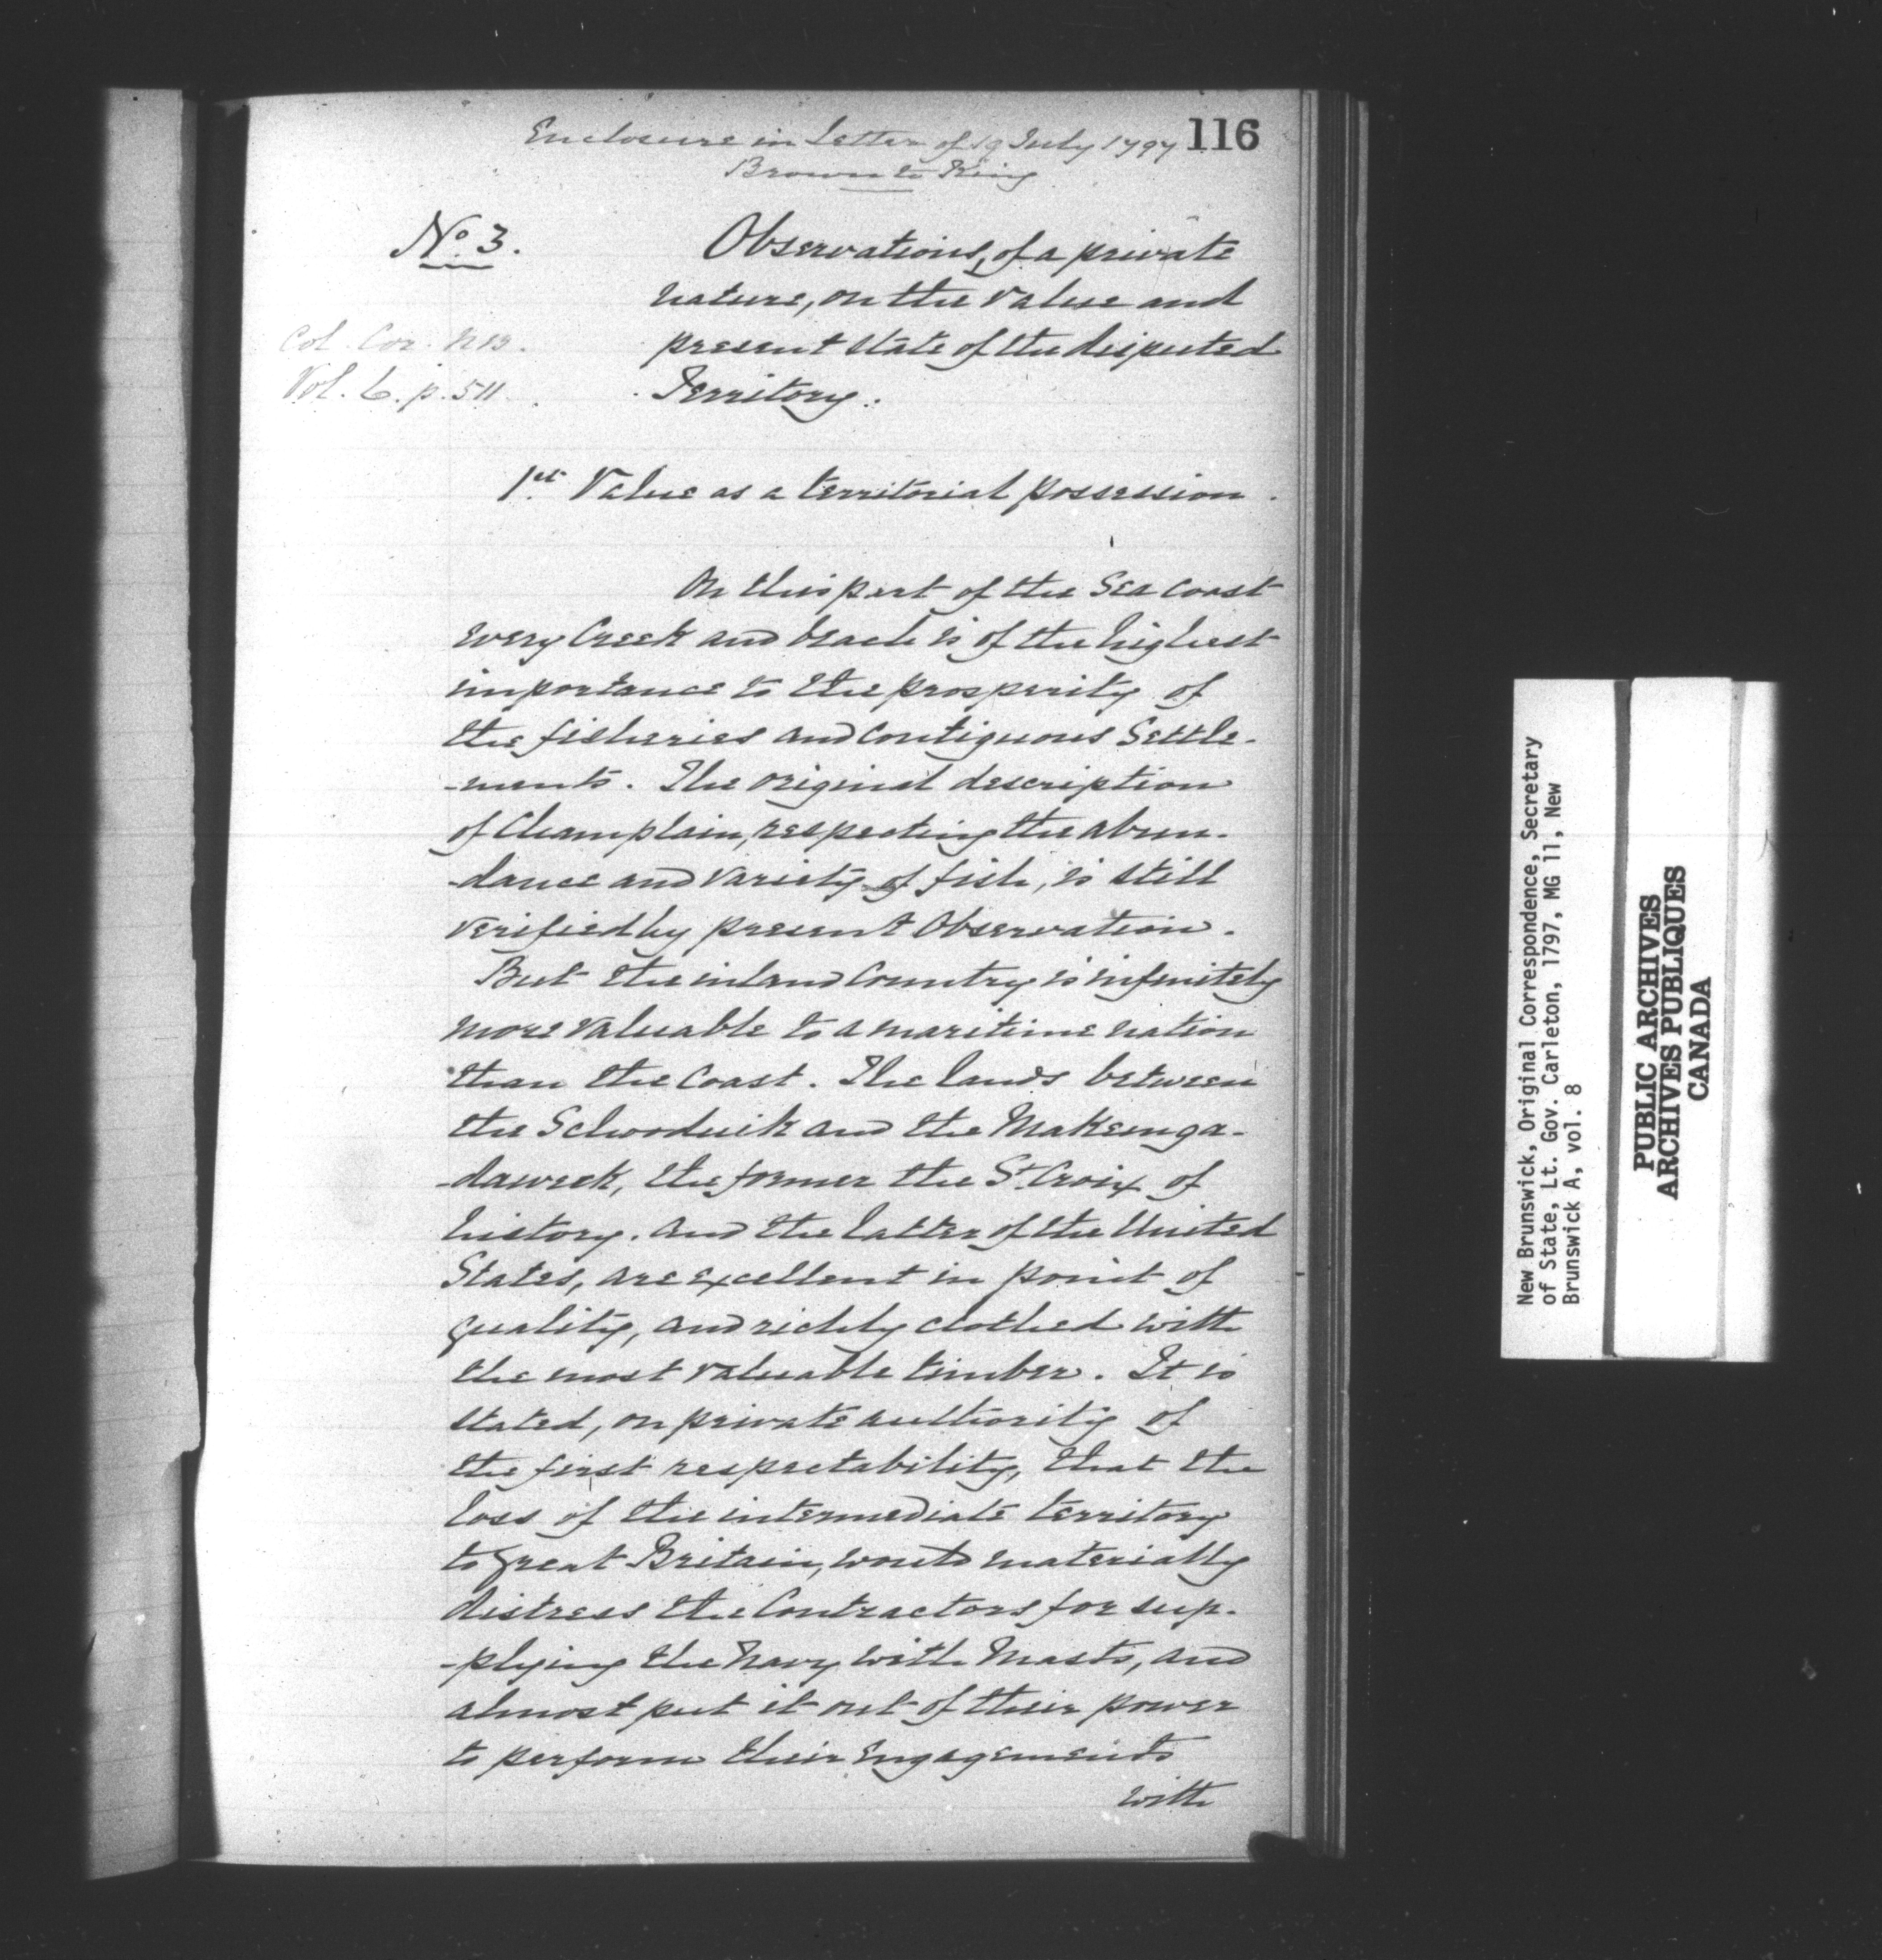 Enclosure in Letter of 19 July 1797
116
Brown to King
No. 3.
Observations, of a private
nature, on the value and
present state of the disputed
Territory.
Col. Cor. N.B.
Vol. 6. p. 511
1st Value as a territorial possession.
On this part of the Sea Coast
every Creek and beach is of the highest
importance to the prosperity of
the fisheries and contiguous Settle-
-ments. The original description
of Champlain, respecting the abun-
-dance and variety of fish, is still
verified by present observation.
But the inland Country is infinitely
more valuable to a maritime nation
than the Coast. The lands between
the Schooduik and the Makeunga-
-daweek, the former the St. Croix of
history. and the latter of the United
States, are excellent in point of
quality, and richly clothed with
the most valuable timber. It is
stated, on private authority of
the first respectability, that the
loss of the intermediate territory
to Great Britain, would materially
distress the Contractors for sup-
-plying the Navy with Masts, and
almost put it out of their power
to perform their engagements
with
New Brunswick, Original Correspondence, Secretary
of State, Lt. Gov. Carleton, 1797, MG 11, New
Brunswick A, vol. 8
PUBLIC ARCHIVES
ARCHIVES PUBLIQUES
CANADA